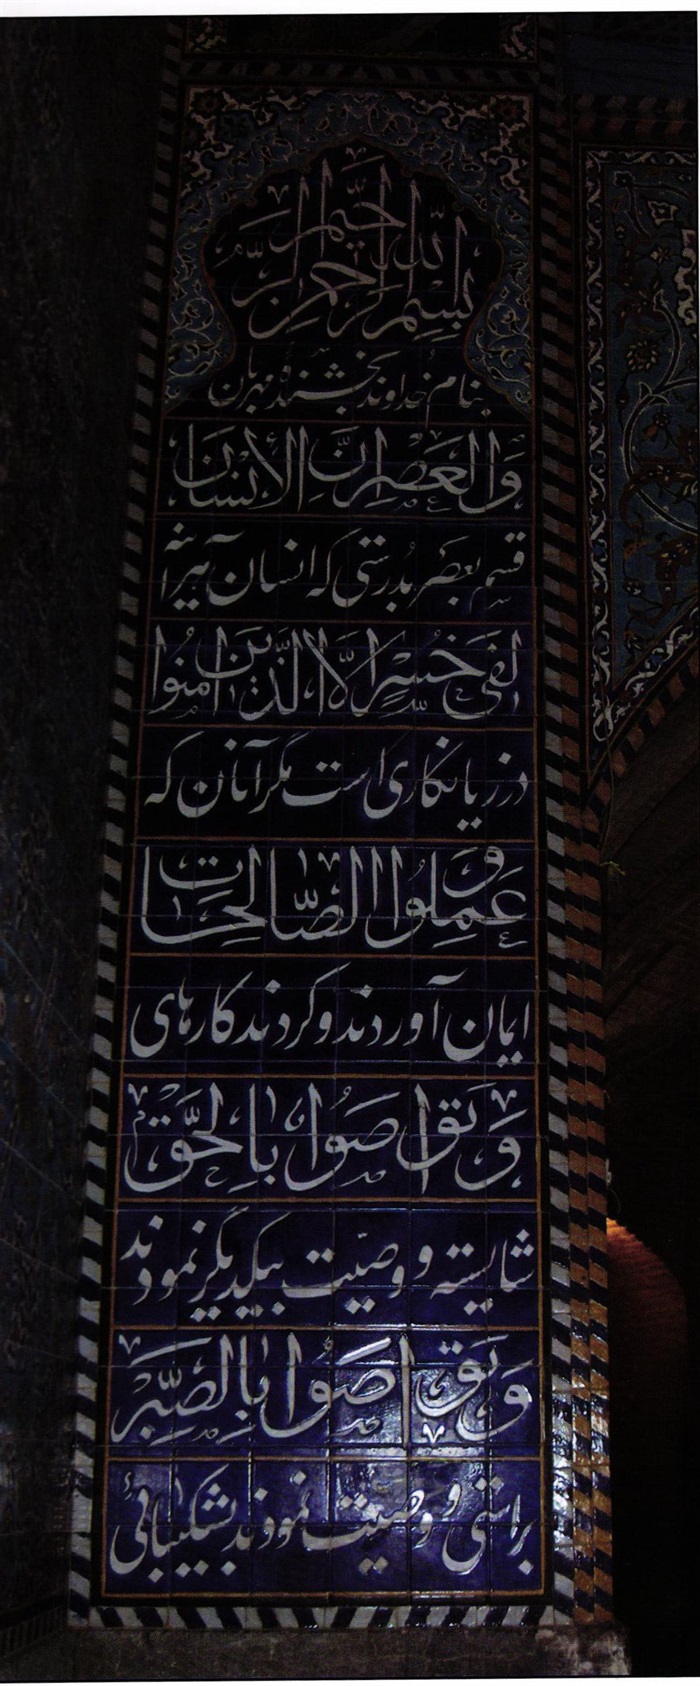 بسم الله الرحمن الرحیم
بنام خداوند بخشنده مهربان
وَالعَصرِ اِنَّ الاِنسان
قسم بعصر بدرستی که انسان هر آینه
لَفی خُسرٍ اِلاَّ الَّذینَ امَنُوا
در زیانکاری است مگر آنان که
وَ عَمِلُوا الصّالِحات
ایمان آوردند و کردند کارهای
وَ تَواصَوا بِالحَقّ
شایسته و وصیّت بیکدیگر نمودند
وَ تَواصَوا بِالصَّبر
براستی و وصیّت نمودند بشکیبائی